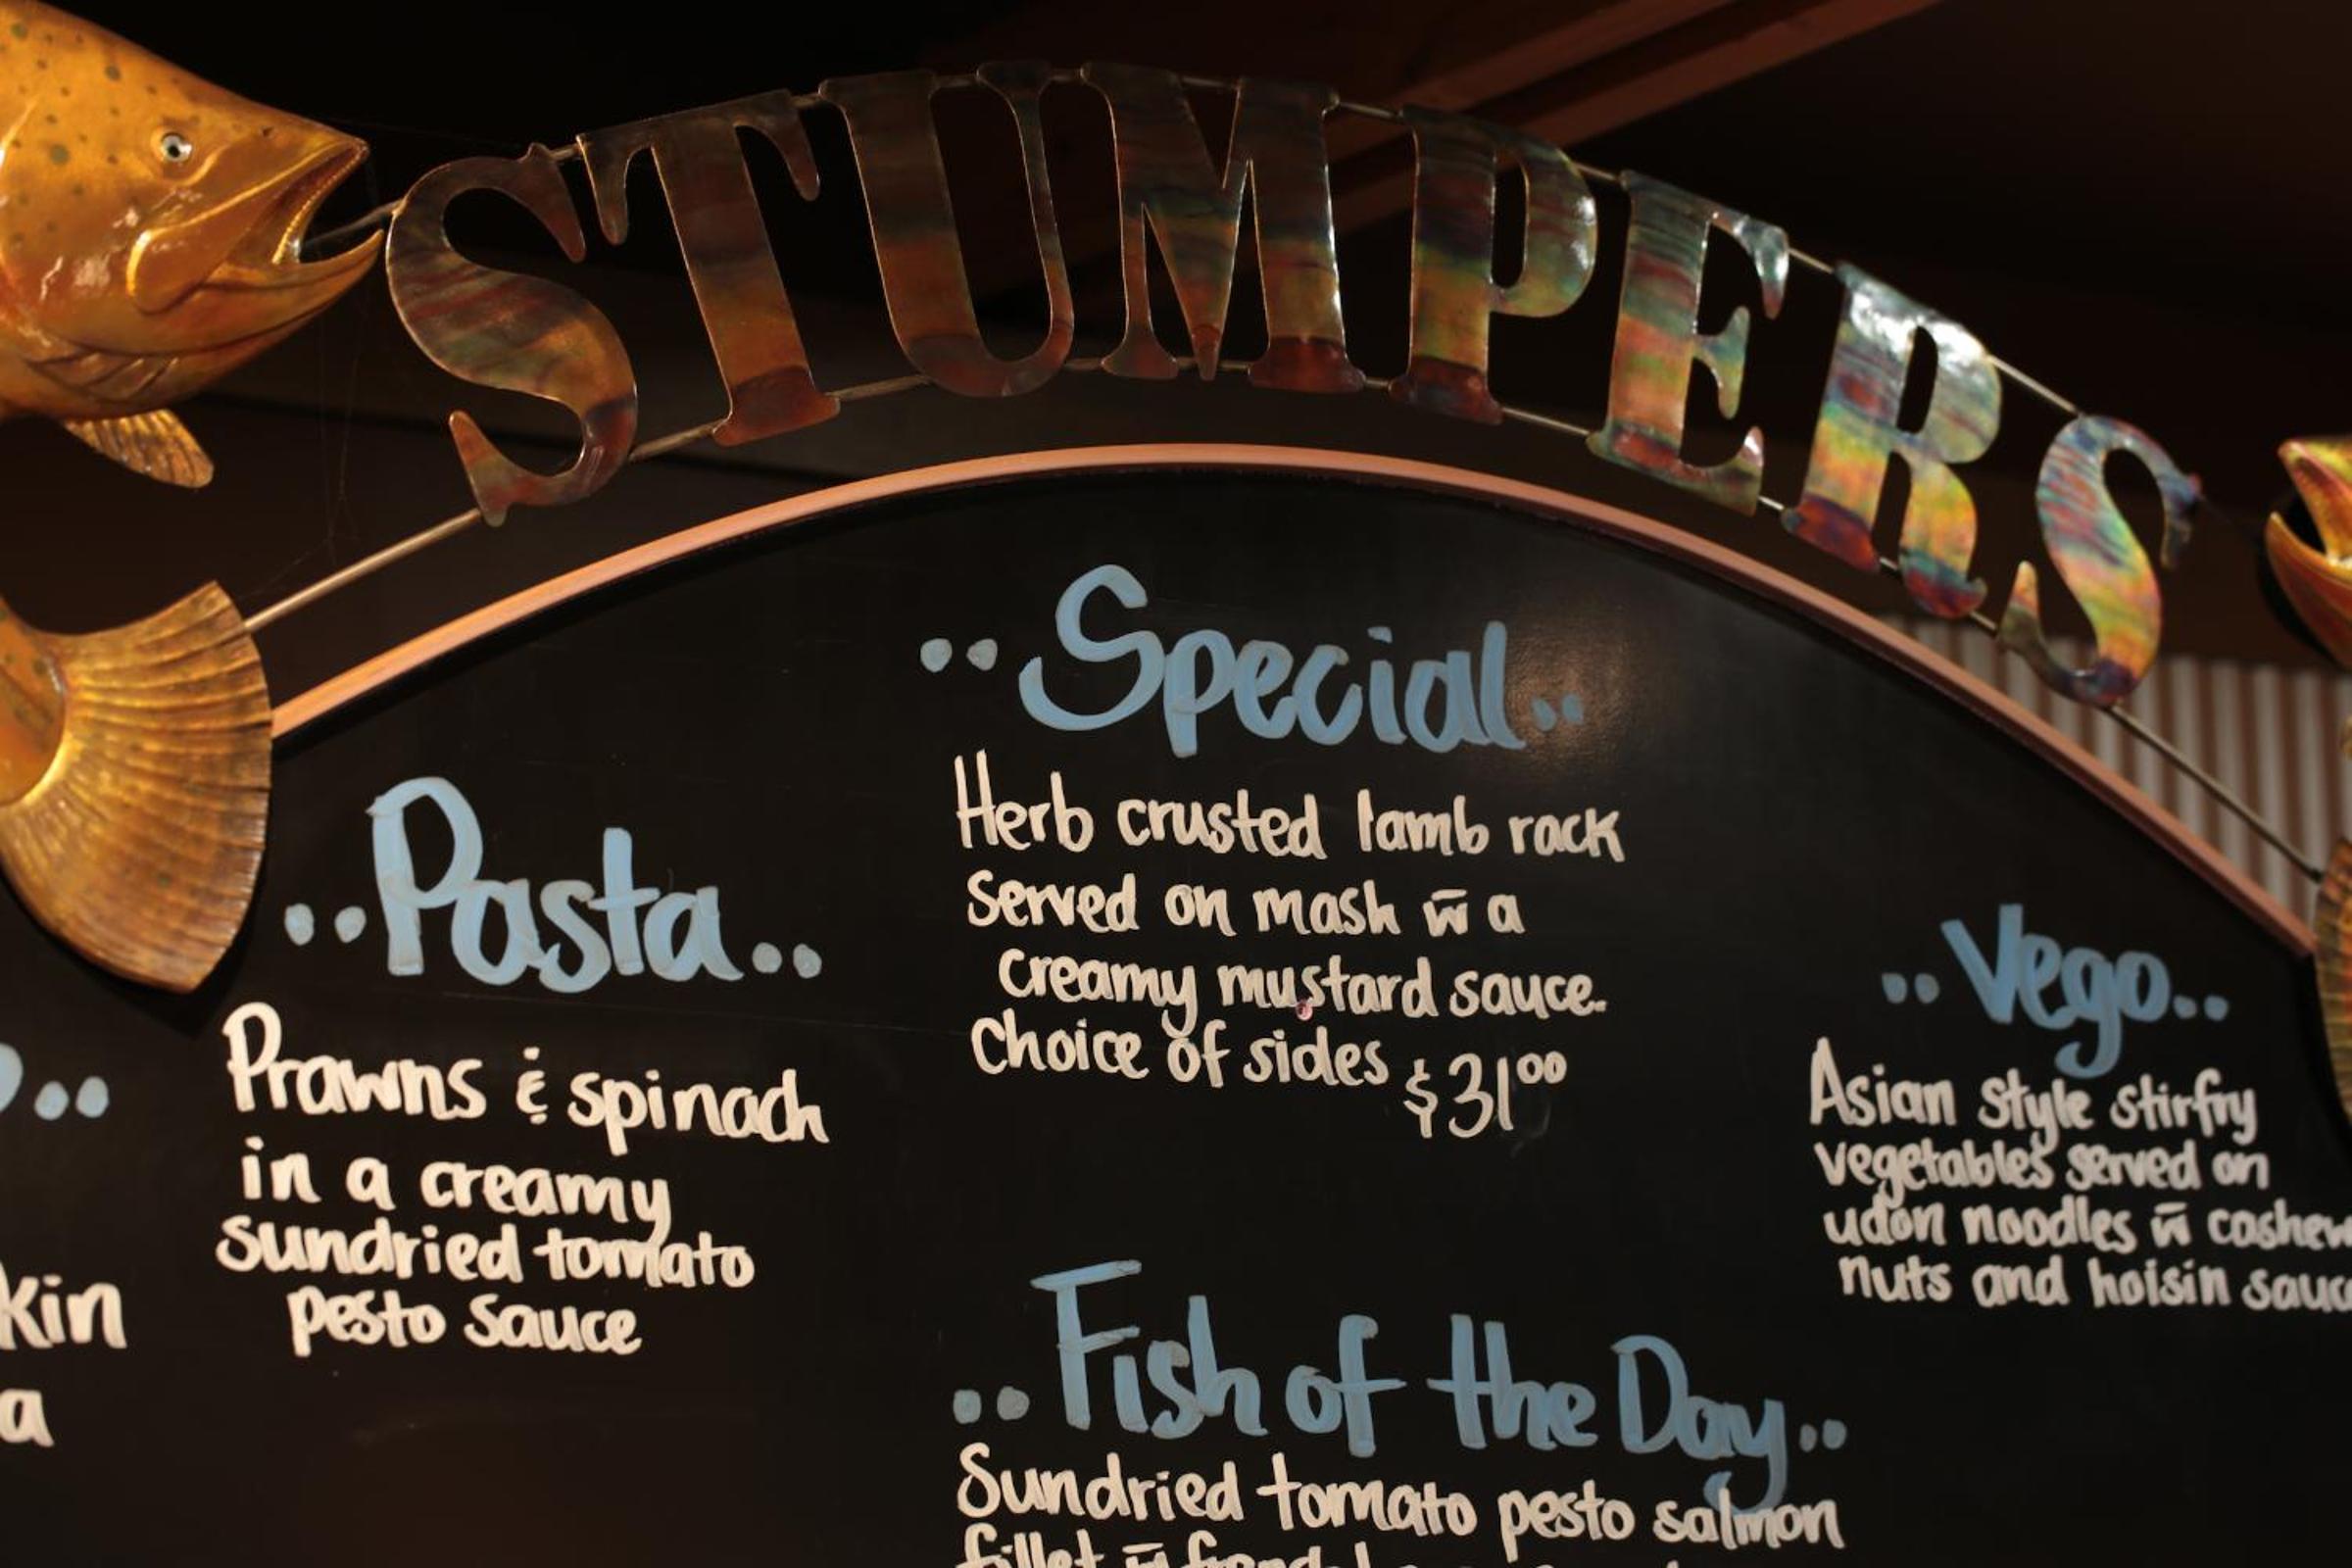 STUMPERS
..Special..
Herb crusted lamb rack
served on mash w̄ a
creamy mustard sauce.
Choice of sides $31⁰⁰
..Pasta..
Prawns & spinach
in a creamy
sundried tomato
pesto sauce
..Vego..
Asian style stirfry
vegetables served on
udon noodles w̄ cashew
nuts and hoisin sauc
..Fish of the Day..
Sundried tomato pesto salmon
fillet w̄
..
kin
a